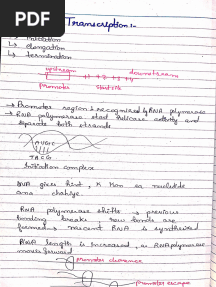 PDF
Transcription:-
↳ initiation
↳ elongation
↳ termination
upstream downstream
+1 +2 +3 +4
Promoter Start site
→ Promoter region is recognised by RNA polymerase
→ RNA polymerase start helicase activity and
separate both strands
AUGC
TACG
Initiation complex
DNA gives hint, as
RNA polymerase shifts → previous
bonding breaks new bonds are
formed → nascent RNA is synthesized
RNA length is increased, as RNA polymerase
moves forward
Promoter clearance
Promoter escape